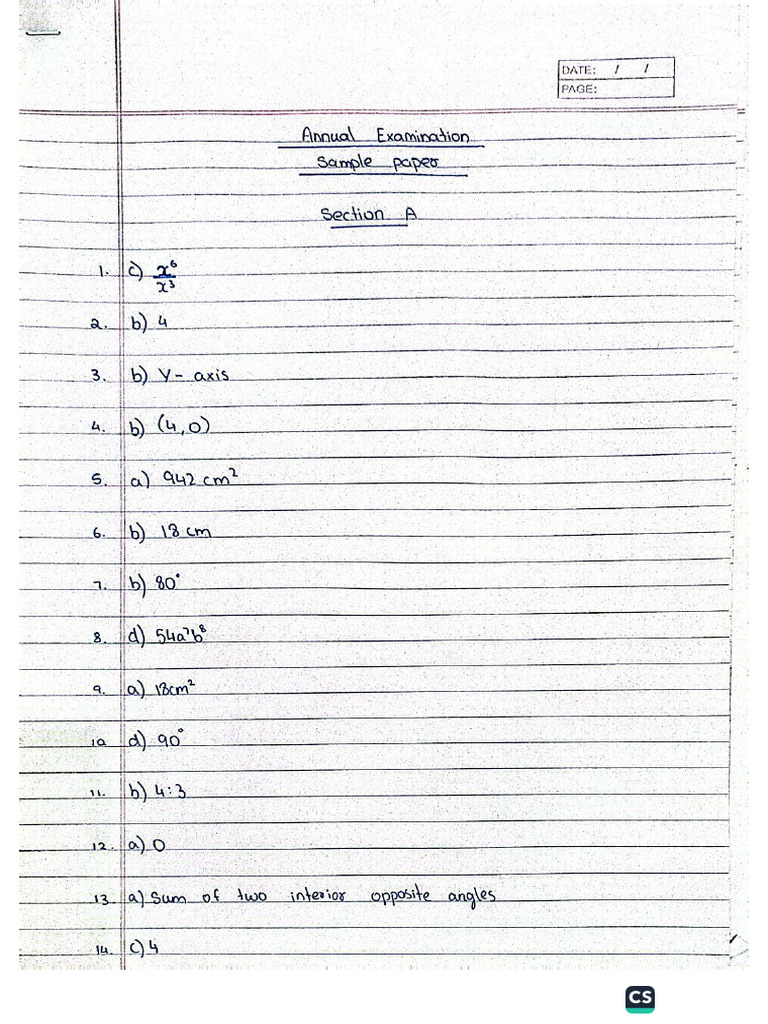 DATE: / /
PAGE:
Annual Examination
Sample paper
Section A
1. c) x⁶/x³
2. b) 4
3. b) Y- axis
4. b) (4,0)
5. a) 942 cm²
6. b) 18 cm
7. b) 80°
8. d) 54a⁷b⁸
9. a) 18cm²
10 d) 90°
11. b) 4:3
12. a) 0
13. a) Sum of two interior opposite angles
14. c) 4
CS